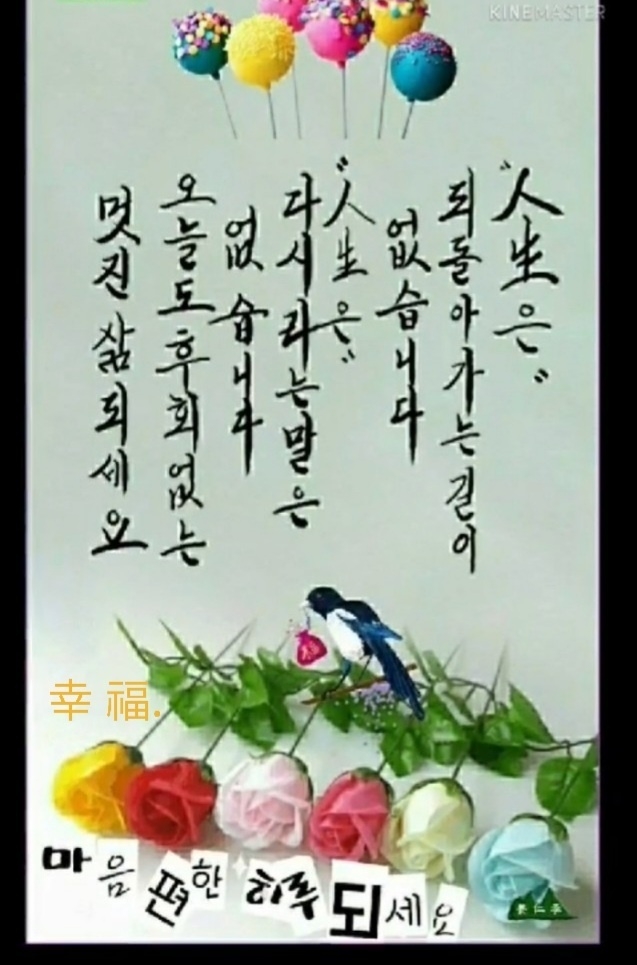 KINEMASTER
"人生은"
되돌아가는길이
없습니다
"人生은"
다시라는말은
없습니다
오늘도후회없는
멋진삶되세요
幸福.
마음편한하루되세요